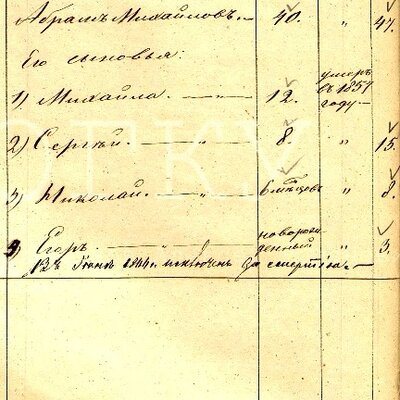 Абрамъ Михайловъ. — 40. „ 47.
Его сыновья:
1) Михайла. — „ — 12. умеръ въ 1857 году —
2) Сергѣй. — „ — 8. „ 15.
3) Николай. — „ — 6 мѣсяцовъ „ 8.
4) Егоръ. — „ — новорожденный „ 3.
исключенъ за смертію. —